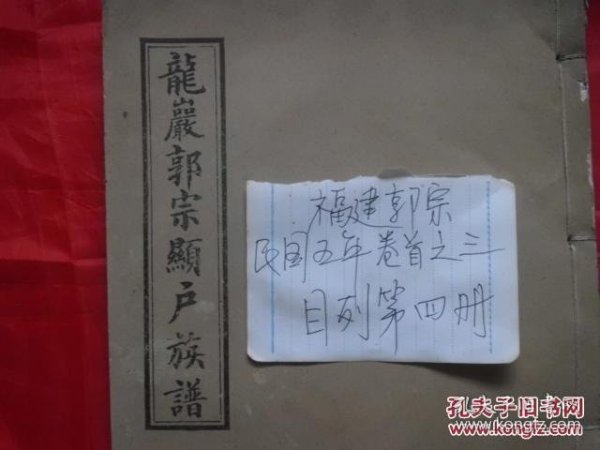 龍巖郭宗顯户族譜
福建郭宗
民国五年卷首之三
目列第四册
孔夫子旧书网
www.kongfz.com